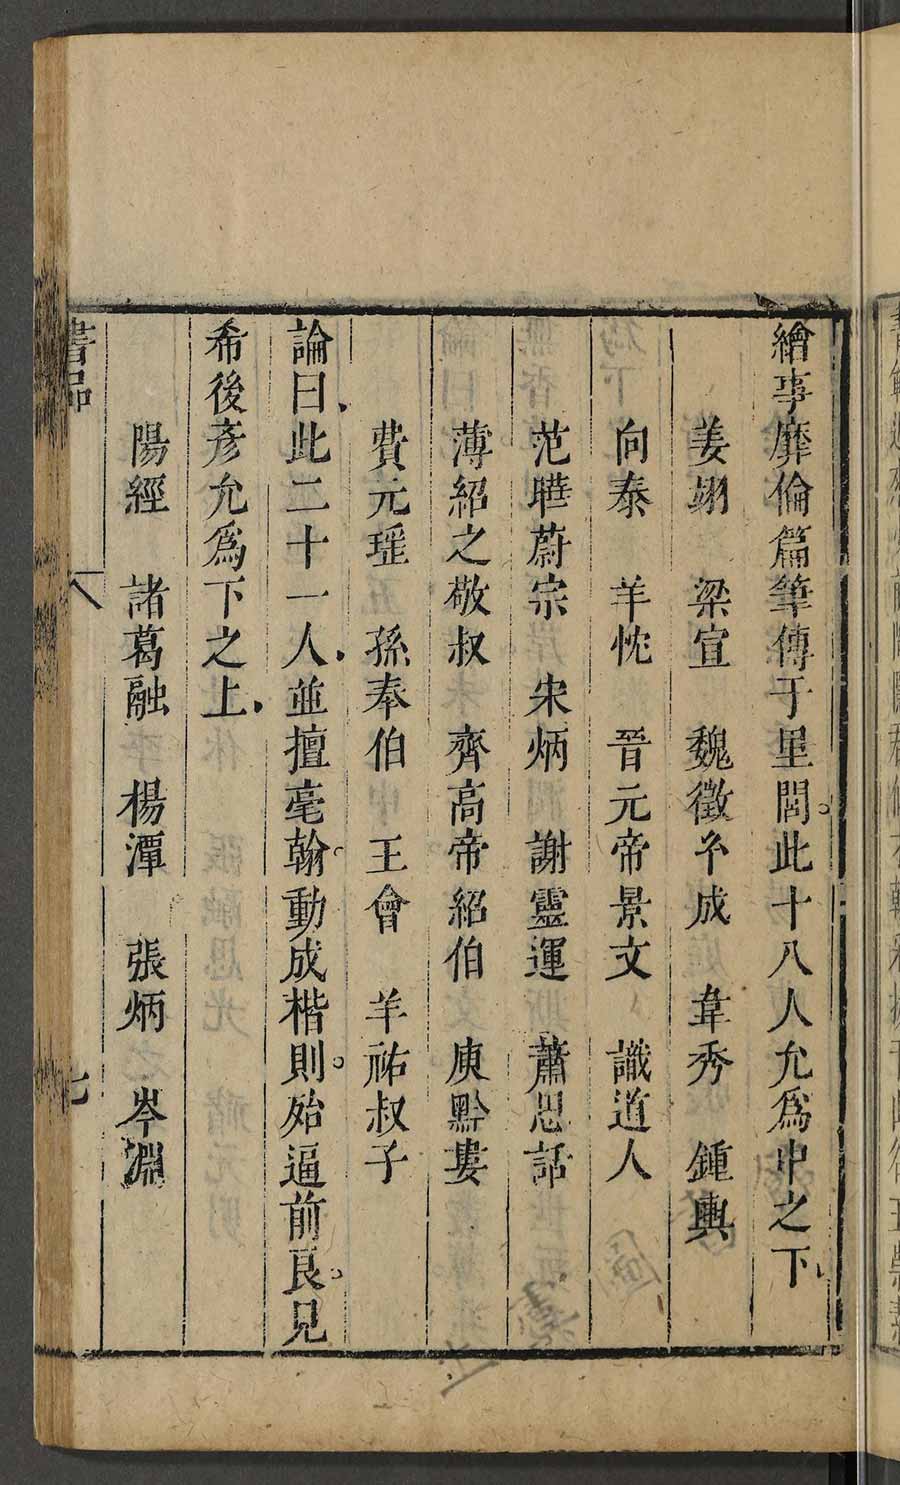 繪事靡倫篇筆傳于里閭此十八人允爲中之下
姜翊　梁宣　魏徵玄成　韋秀　鍾輿
向泰　羊忱　晉元帝景文　識道人
范曄蔚宗　宋炳　謝靈運　蕭思話
薄紹之敬叔　齊高帝紹伯　庾黔婁
費元瑤　孫奉伯　王會　羊祐叔子
論曰此二十一人並擅毫翰動成楷則殆逼前良見
希後彥允爲下之上
陽經　諸葛融　楊潭　張炳　岑淵
書品
七